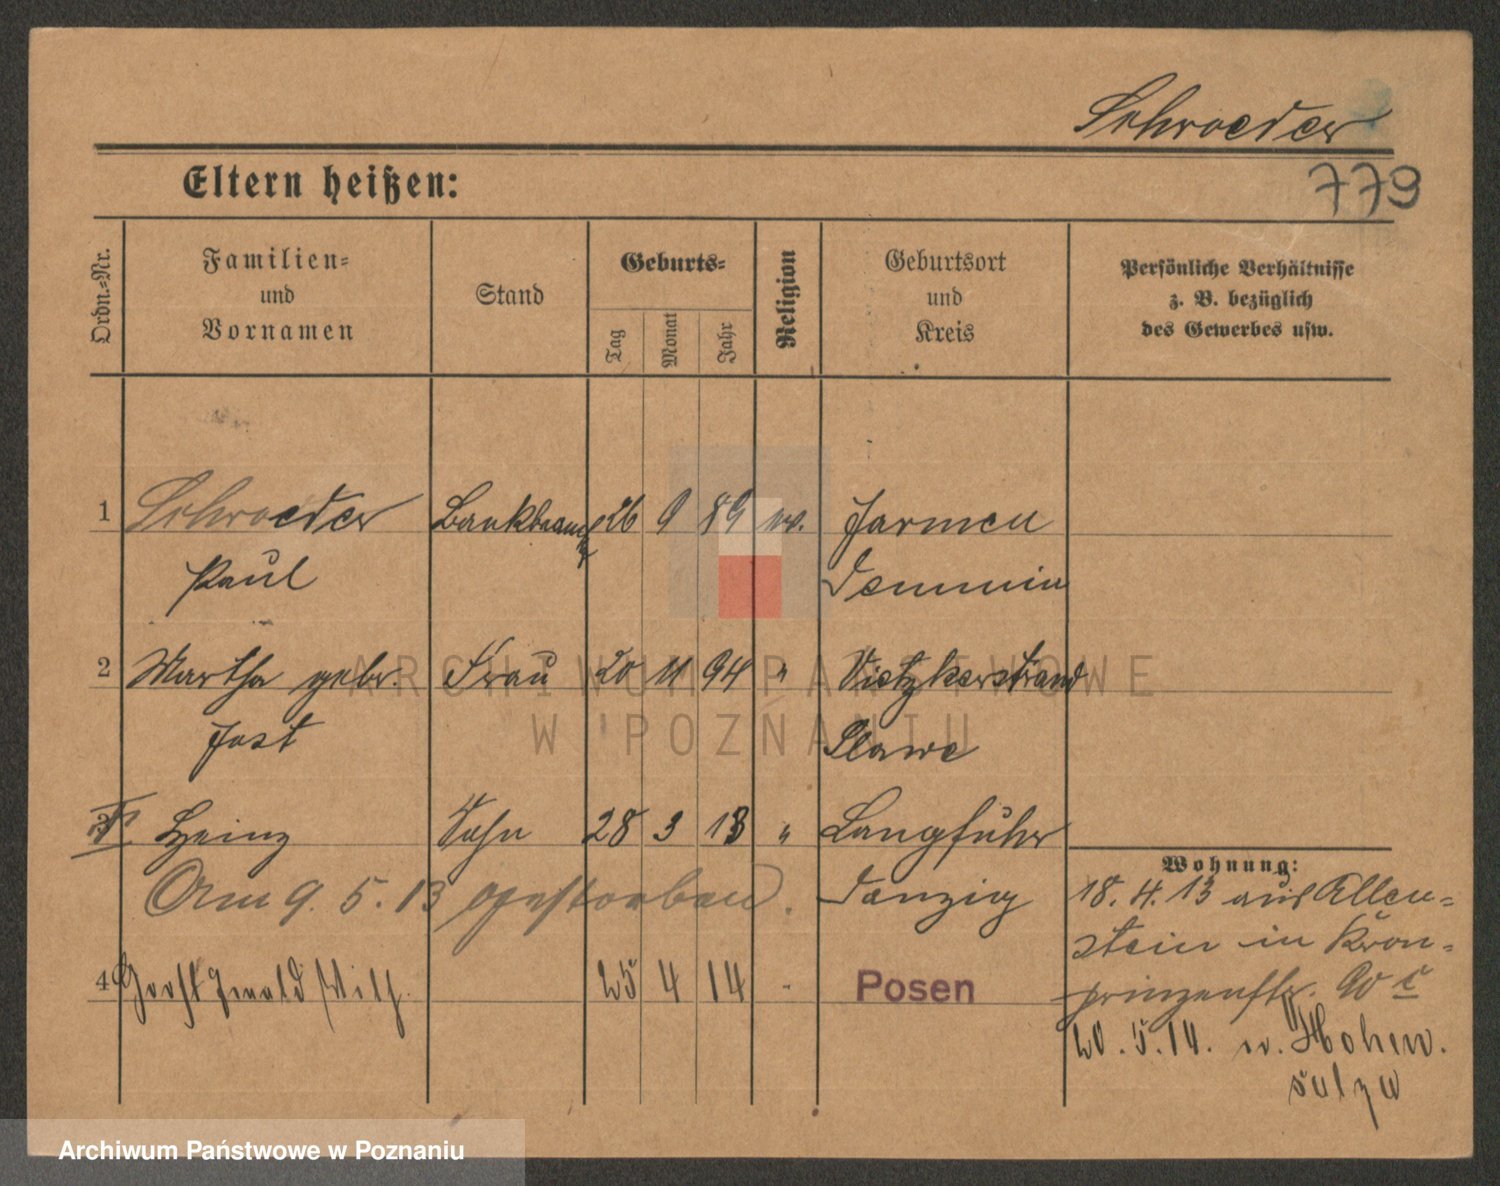 Schroeder
779
Eltern heißen:
Ordn.-Nr.
Familien-
und
Vornamen
Stand
Geburts-
Tag
Monat
Jahr
Religion
Geburtsort
und
Kreis
Persönliche Verhältnisse
z. B. bezüglich
des Gewerbes usw.
1 Schroeder Bankbeamter 26 9 89 ev. Jarmen
Paul Demmin
2 Martha gebr. Frau 20 11 94 " Vietzkerstrand
Jost Slawe
3 Heinz Sohn 28 3 13 " Langfuhr
Am 9. 5. 13 gestorben. Danzig
4 Horst Ewald Wilh. 25 4 14 Posen
Wohnung:
18. 4. 13 aus Allen-
stein in Kron-
prinzenstr. 90 c
20. 5. 14. n. Hohen.
salza
ARCHIWUM PAŃSTWOWE
W POZNANIU
Archiwum Państwowe w Poznaniu